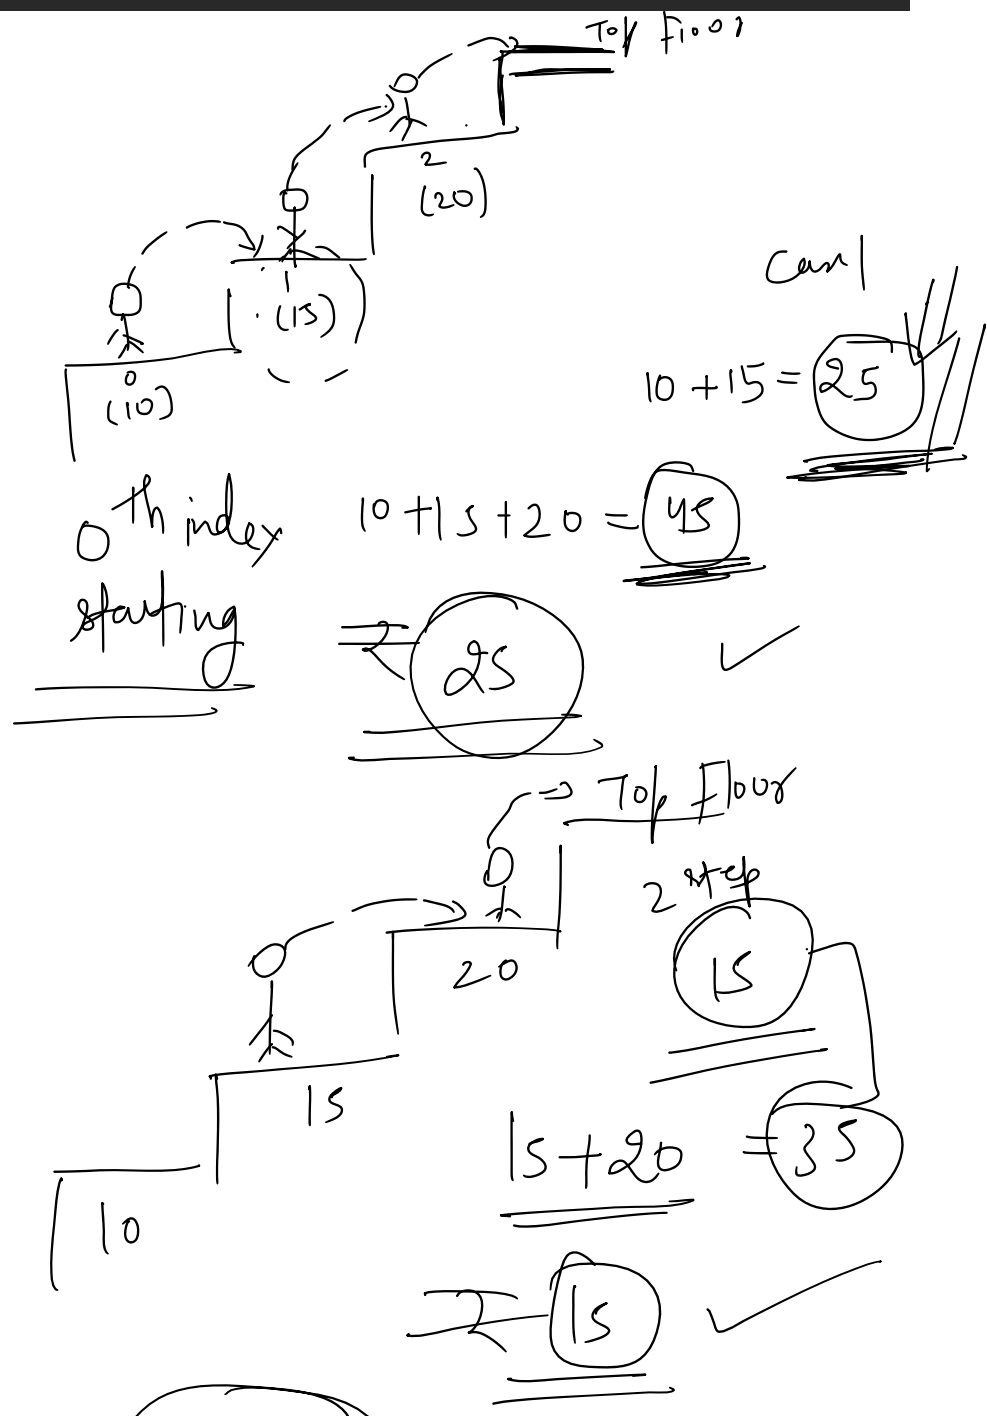 Top Floor
2
(20)
1
(15)
0
(10)
Case 1
10 + 15 = 25
0th index
starting
10 + 15 + 20 = 45
₹ 25
Top Floor
2 step
15
20
15
15 + 20 = 35
10
₹ 15